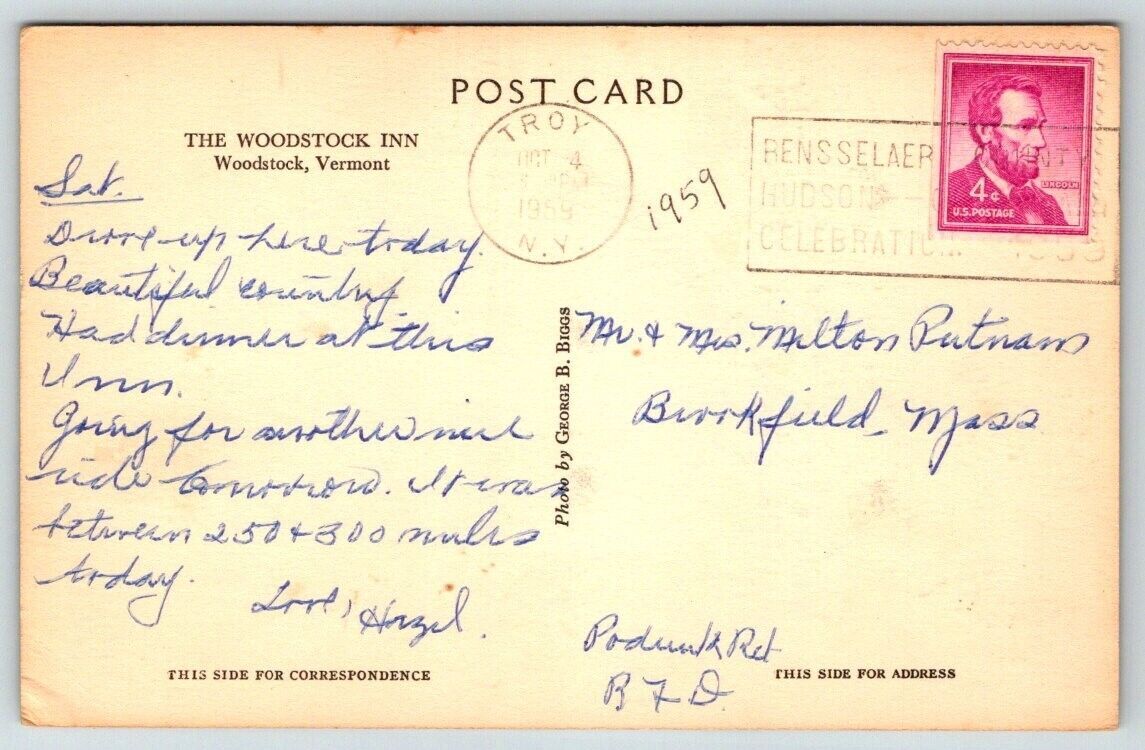 POST CARD
THE WOODSTOCK INN
Woodstock, Vermont
TROY
OCT 4
1959
N.Y.
1959
RENSSELAER COUNTY
HUDSON
CELEBRATION 1959
4¢
LINCOLN
U.S. POSTAGE
Sat.
Drove up here today.
Beautiful country
Had dinner at this
Inn.
Going for another nice
ride tomorrow. It was
between 250 + 300 miles
today.
Love, Hazel.
Photo by GEORGE B. BIGGS
Mr. & Mrs. Milton Putnam
Brookfield, Mass
Podunk Rd
R F D
THIS SIDE FOR CORRESPONDENCE
THIS SIDE FOR ADDRESS